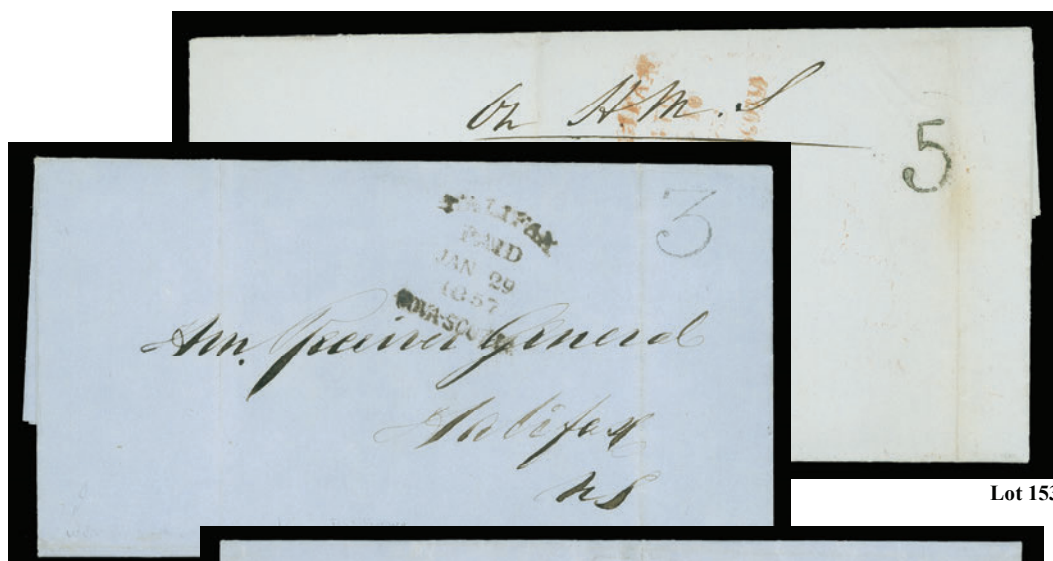 On H.M.S
5
HALIFAX
PAID
JAN 29
1857
NOVA-SCOTIA
3
Hon. Receiver General
Halifax
NS
Lot 153